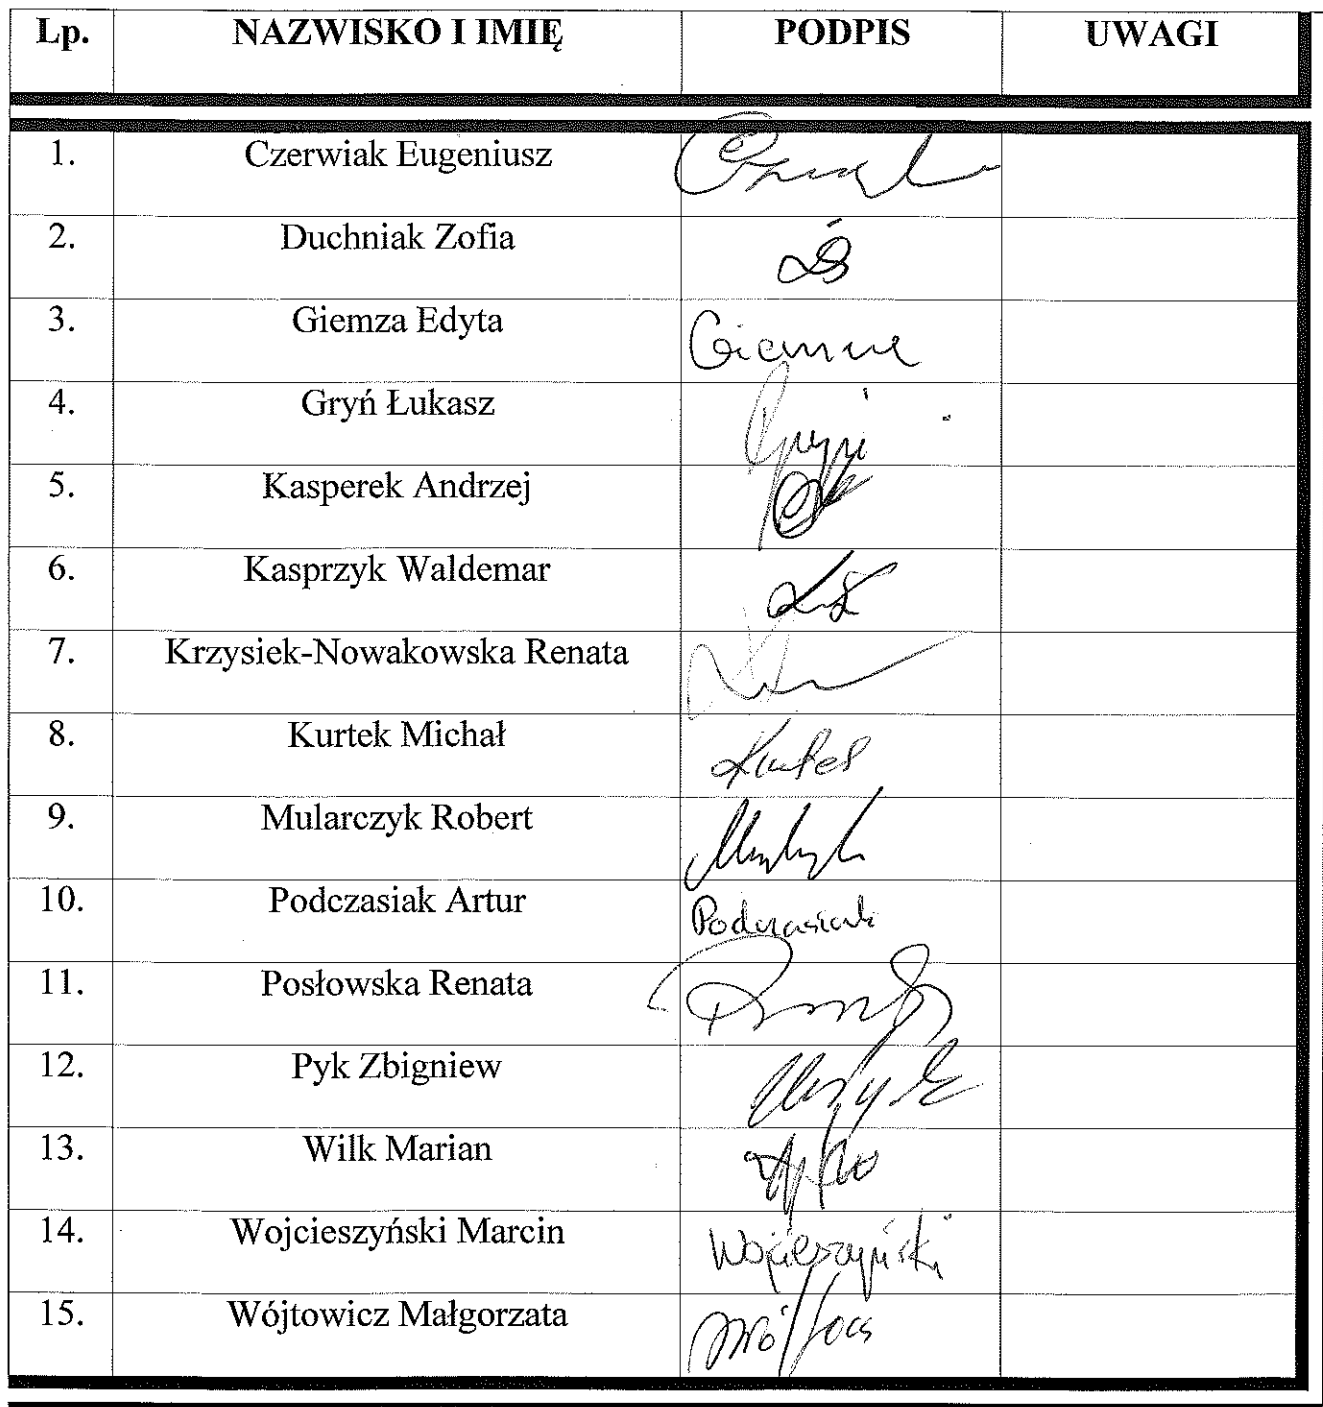 Lp. NAZWISKO I IMIĘ PODPIS UWAGI
1. Czerwiak Eugeniusz
2. Duchniak Zofia
3. Giemza Edyta
4. Gryń Łukasz
5. Kasperek Andrzej
6. Kasprzyk Waldemar
7. Krzysiek-Nowakowska Renata
8. Kurtek Michał
9. Mularczyk Robert
10. Podczasiak Artur Podczasiak
11. Posłowska Renata
12. Pyk Zbigniew
13. Wilk Marian
14. Wojcieszyński Marcin Wojcieszyński
15. Wójtowicz Małgorzata